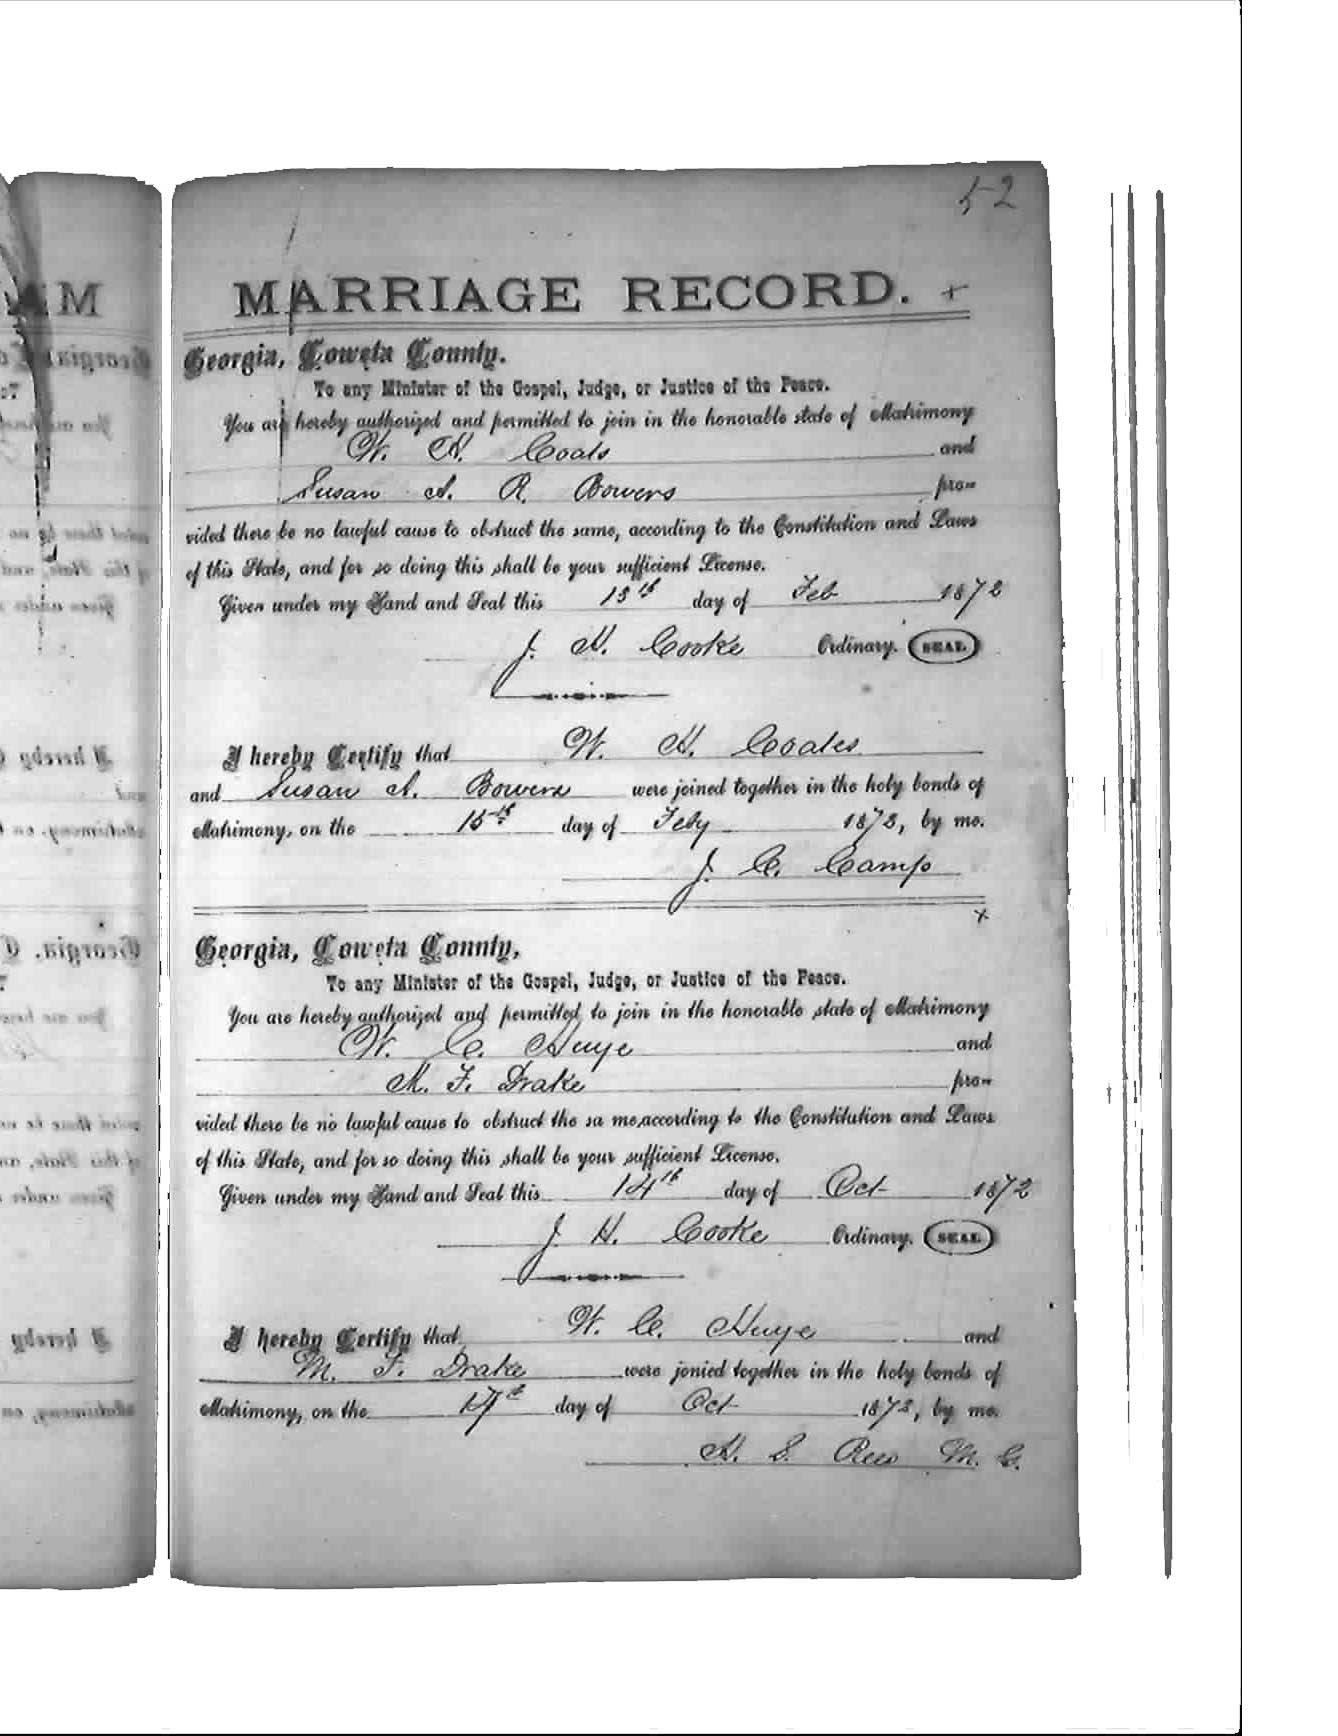 52
MARRIAGE RECORD. +
Georgia, Coweta County.
To any Minister of the Gospel, Judge, or Justice of the Peace.
You are hereby authorized and permitted to join in the honorable state of Matrimony
W. H. Coats and
Susan A. R. Bowers pro=
vided there be no lawful cause to obstruct the same, according to the Constitution and Laws
of this State, and for so doing this shall be your sufficient License.
Given under my Hand and Seal this 15th day of Feb 1872
J. H. Cooke Ordinary. SEAL
I hereby Certify that W. H. Coates
and Susan A. Bowers were joined together in the holy bonds of
Matrimony, on the 15th day of Feby 1872, by me.
J. C. Camp
x
Georgia, Coweta County,
To any Minister of the Gospel, Judge, or Justice of the Peace.
You are hereby authorized and permitted to join in the honorable state of Matrimony
W. C. Huye and
M. F. Drake pro=
vided there be no lawful cause to obstruct the sa me,according to the Constitution and Laws
of this State, and for so doing this shall be your sufficient License.
Given under my Hand and Seal this 14th day of Oct 1872
J. H. Cooke Ordinary. SEAL
I hereby Certify that W. C. Huye and
M. F. Drake were jonied together in the holy bonds of
Matrimony, on the 17th day of Oct 1872, by me.
H. S. Rees M. G.